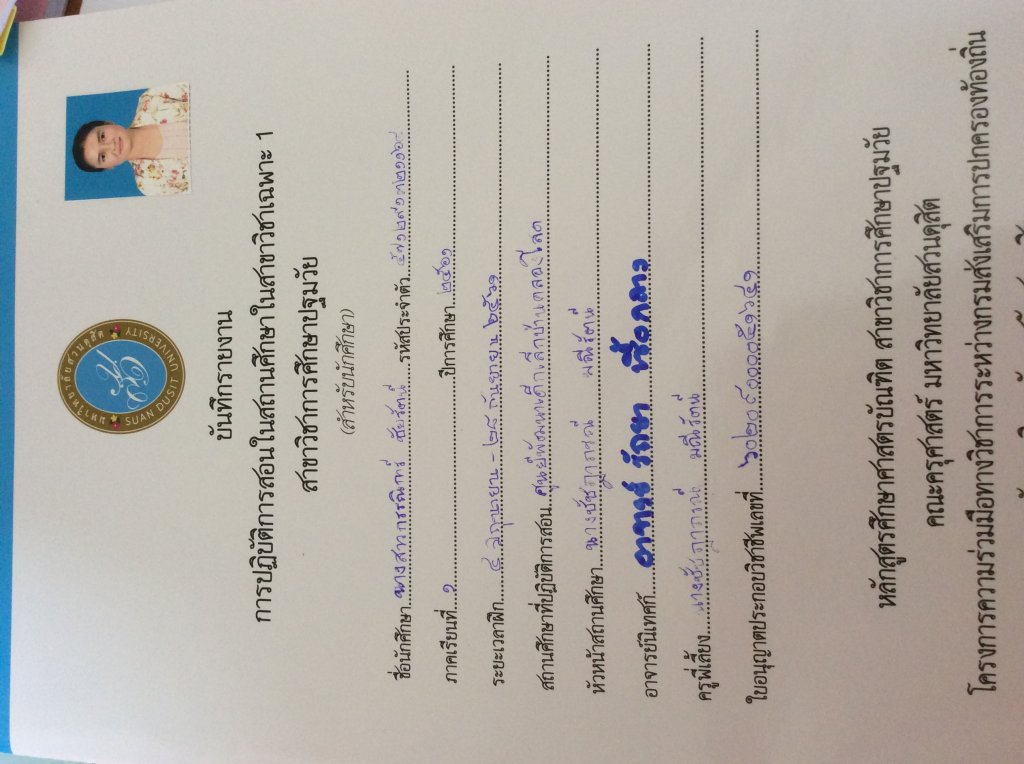 มหาวิทยาลัยสวนดุสิต
SUAN DUSIT UNIVERSITY
บันทึกรายงาน
การปฏิบัติการสอนในสถานศึกษาในสาขาวิชาเฉพาะ 1
สาขาวิชาการศึกษาปฐมวัย
(สำหรับนักศึกษา)
ชื่อนักศึกษา นางสาวกรรณิการ์ ชัยรัตน์ รหัสประจำตัว
ภาคเรียนที่ ๑ ปีการศึกษา ๒๕๖๑
ระยะเวลาฝึก ๔ มิถุนายน - ๒๘ กันยายน ๒๕๖๑
สถานศึกษาที่ปฏิบัติการสอน ศูนย์พัฒนาเด็กเล็กบ้าน
หัวหน้าสถานศึกษา นางชัชฎาภรณ์ มณีรัตน์
อาจารย์นิเทศก์ อาจารย์ รักษา
ครูพี่เลี้ยง นางชัชฎาภรณ์ มณีรัตน์
ใบอนุญาตประกอบวิชาชีพเลขที่
หลักสูตรศึกษาศาสตรบัณฑิต สาขาวิชาการศึกษาปฐมวัย
คณะครุศาสตร์ มหาวิทยาลัยสวนดุสิต
โครงการความร่วมมือทางวิชาการระหว่างกรมส่งเสริมการปกครองท้องถิ่น